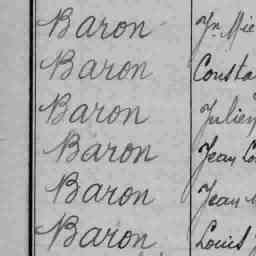 Baron Jn Mie
Baron Consta
Baron Julien
Baron Jean Lo
Baron Jean
Baron Louis